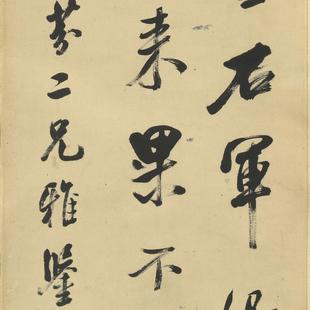 右軍
来果不
芬二兄雅鑒